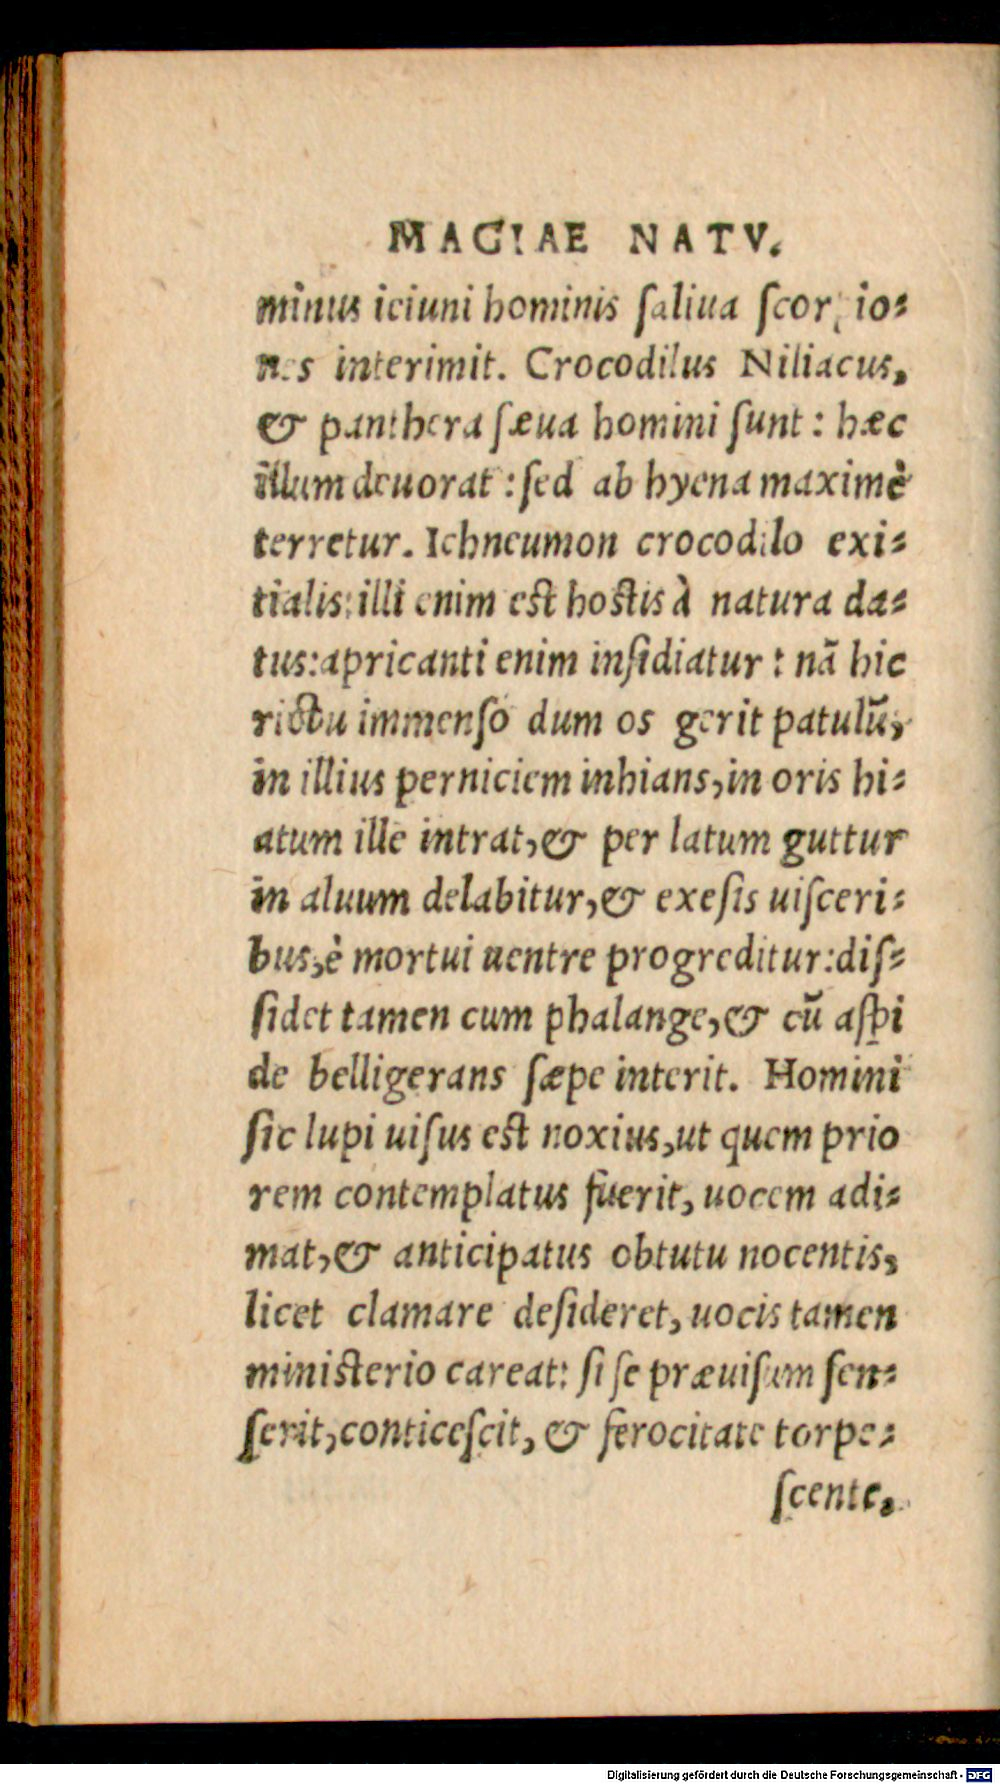 MAGIAE NATV.
minus ieiuni hominis ſaliua ſcorpio⸗
nes interimit. Crocodilus Niliacus,
& panthera ſæua homini ſunt: hæc
illum deuorat: ſed ab hyena maximè
terretur. Ichneumon crocodilo exi⸗
tialis: illi enim est hostis à natura da⸗
tus: apricanti enim inſidiatur: nã hic
rictu immenſo dum os gerit patulũ,
in illius perniciem inhians, in oris hi⸗
atum ille intrat, & per latum guttur
in aluum delabitur, & exeſis uiſceri⸗
bus, è mortui uentre progreditur: diſ⸗
ſidet tamen cum phalange, & cũ aſpi
de belligerans ſæpe interit. Homini
ſic lupi uiſus est noxius, ut quem prio
rem contemplatus fuerit, uocem adi⸗
mat, & anticipatus obtutu nocentis,
licet clamare deſideret, uocis tamen
ministerio careat: ſi ſe præuiſum ſen⸗
ſerit, conticeſcit, & ferocitate torpe⸗
ſcente,
Digitalisierung gefördert durch die Deutsche Forschungsgemeinschaft - DFG